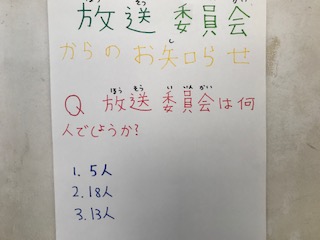 放送委員会
からのお知らせ
Q 放送委員会は何
人でしようか?
1. 5人
2. 18人
3. 13人